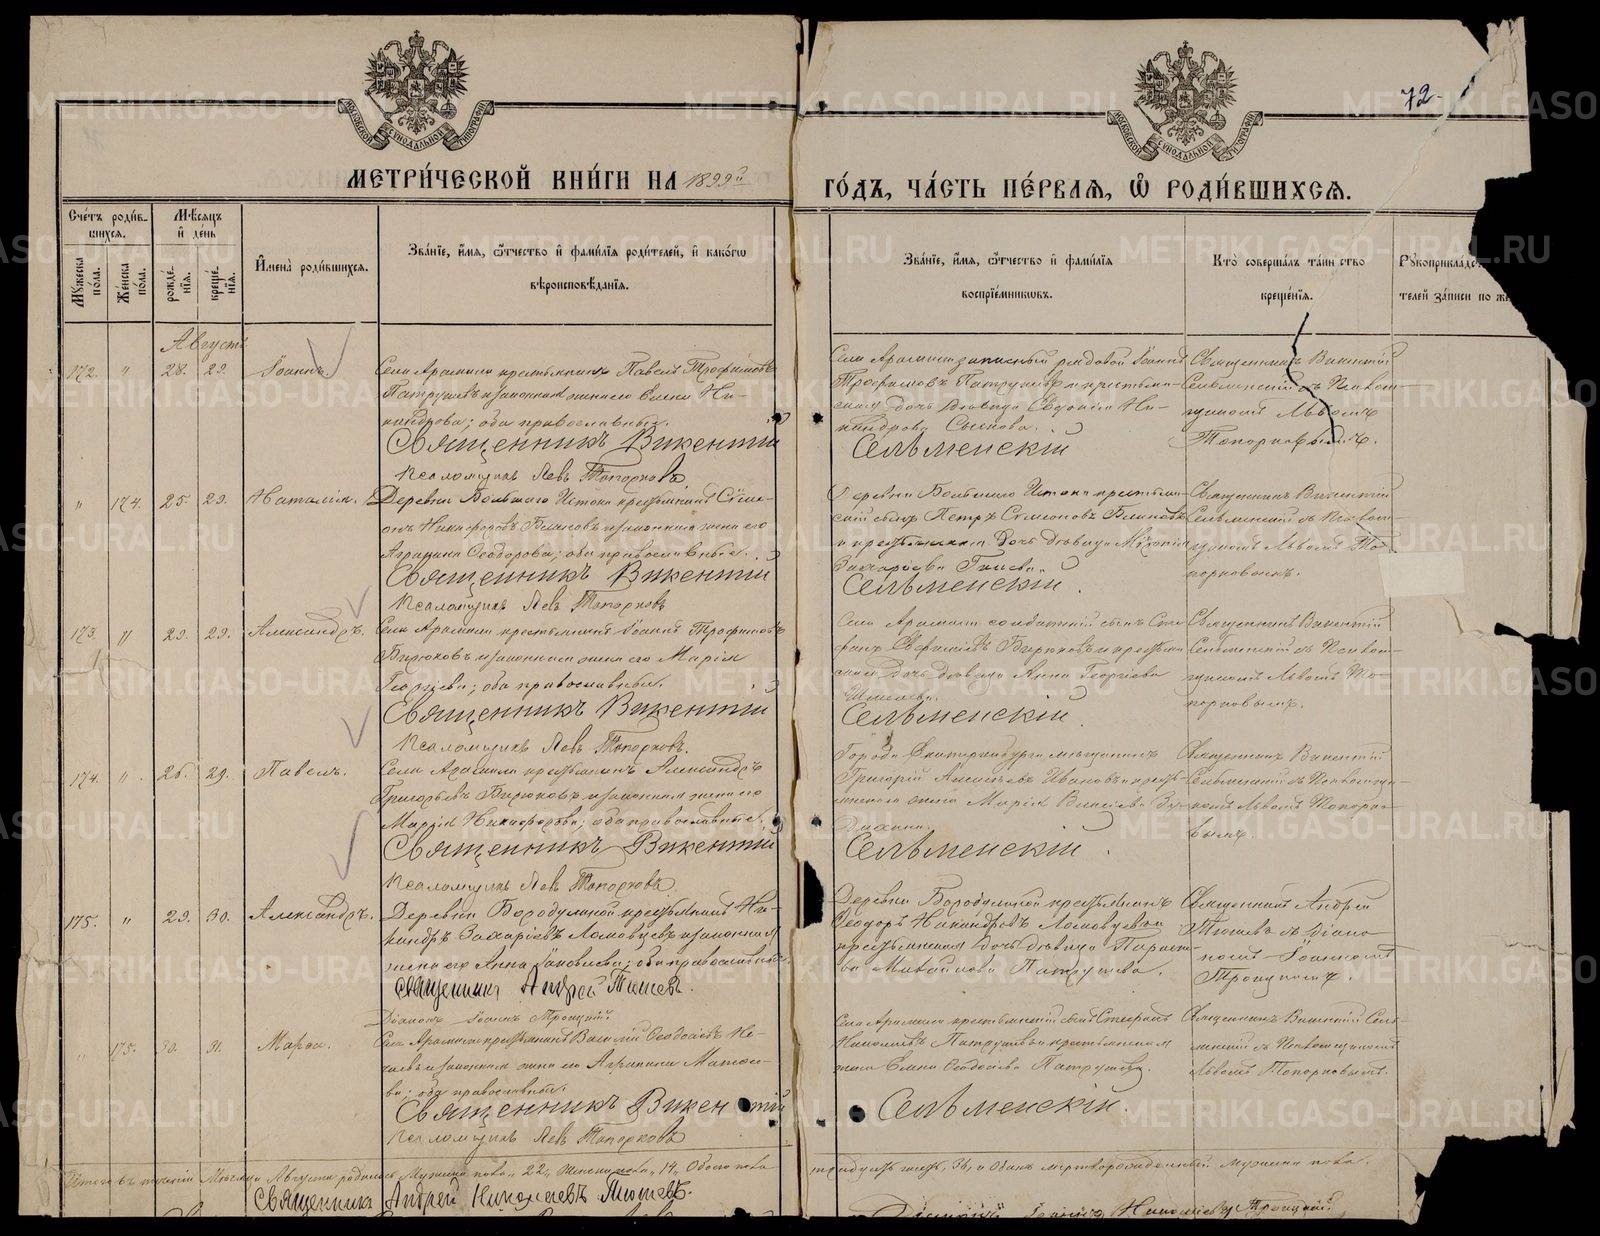 72
МЕТРИ́ЧЕСКОЙ КНИ́ГИ НА 1899й
ГО́ДЪ, ЧА́СТЬ ПЕ́РВАЯ, Ѿ РОДИ́ВШИХСЯ.
Сче́тъ роди́в-
шихся.
Мꙋжеска по́ла.
Же́нска по́ла.
Мѣ́сяцъ и҆ де́нь
рожде́-
нїя.
креще́-
нїя.
И҆мена̀ роди́вшихся.
Зва́нїе, и҆́мя, ѻ҆́тчество и҆ фами́лїя роди́телей, и҆ како́гѡ
вѣроисповѣ́данїя.
Зва́нїе, и҆́мя, ѻ҆́тчество и҆ фами́лїя
воспрїе́мникѡвъ.
Кто̀ соверша́лъ та́инство
креще́нїя.
Рꙋкоприкла́дс
телей за́писи по же
Августъ
172. " 28. 29. Іоаннъ.
Села Арамили крестьянинъ Павелъ Трофимовъ
Патрушевъ и законная жена его Елена Ни-
кандрова; оба православные.
Священникъ Викентій
Псаломщикъ Левъ Топорковъ
Села Арамили запасный рядовой Іоаннъ
Трофимовъ Патрушевъ и крестьян-
ская дочь девица Евдокія Ни-
кандрова
Сельменскій
Священникъ Викентій
Сельменскій съ Псалом-
щикомъ Львомъ
Топорковымъ.
" 174. 25. 29. Наталія.
Деревни Большаго Истока крестьянинъ Симе-
онъ Никифоровъ Блиновъ и законная жена его
Агрипина Феодорова; оба православные.
Священникъ Викентій
Псаломщикъ Левъ Топорковъ
Деревни Большаго Истока крестьян-
скій сынъ Петръ Симеоновъ Блиновъ
и крестьянская дочь девица
Захаріева
Сельменскій.
Священникъ Викентій
Сельменскій съ Псалом-
щикомъ Львомъ То-
порковымъ.
173. " 29. 29. Александръ.
Села Арамили крестьянинъ Іоаннъ Трофимовъ
Бирюковъ и законная жена его Марія
Георгіева; оба православные.
Священникъ Викентій
Псаломщикъ Левъ Топорковъ.
Села Арамили солдатскій сынъ Сте-
фанъ Бирюковъ и крестьян-
ская дочь девица Анна Георгіева
Сельменскій.
Священникъ Викентій
Сельменскій съ Псалом-
щикомъ Львомъ То-
порковымъ.
174. " 26. 29. Павелъ.
Села Арамили крестьянинъ Александръ
Григорьевъ Бирюковъ и законная жена его
Марія Никифорова; оба православные.
Священникъ Викентій
Псаломщикъ Левъ Топорковъ.
Города Екатеринбурга мещанинъ
Григорій Алексеевъ Ивановъ и кресть-
янская жена Марія
Сельменскій.
Священникъ Викентій
Сельменскій съ Псаломщи-
комъ Львомъ Топорко-
вымъ.
175. " 29. 30. Александръ.
Деревни Бородулиной крестьянинъ Ни-
кандръ Захаріевъ Ломовцевъ и законная
жена его Анна Яковлева; оба православные.
Священникъ Андрей Тюшевъ.
Діаконъ Іоаннъ Троицкій.
Деревни Бородулиной крестьянинъ
Феодоръ Никандровъ Ломовцевъ и
крестьянская дочь девица Параске-
ва Михайлова Патрушева.
Священникъ Андрей
Тюшевъ съ Діако-
номъ Іоанномъ
Троицкимъ.
" 175. 30. 31. Марѳа.
Села Арамили крестьянинъ Василій Феодосіевъ Не-
чаевъ и законная жена его Агрипина Матве-
ева; оба православные.
Священникъ Викентій
Псаломщикъ Левъ Топорковъ
Села Арамили крестьянскій сынъ Стефанъ
Николаевъ Патрушевъ и крестьянская
жена Елена Феодосіева Патрушева.
Сельменскій.
Священникъ Викентій Сель-
менскій съ Псаломщикомъ
Львомъ Топорковымъ.
Итого въ теченіи Месяца Августа родилось Мужеска пола "22", Женска пола "14", Обоего пола
тридцать шесть, 36, и одинъ мертворожденный мужеска пола.
Священникъ Андрей Николаевъ Тюшевъ.
Діаконъ Іоаннъ Николаевъ Троицкій.